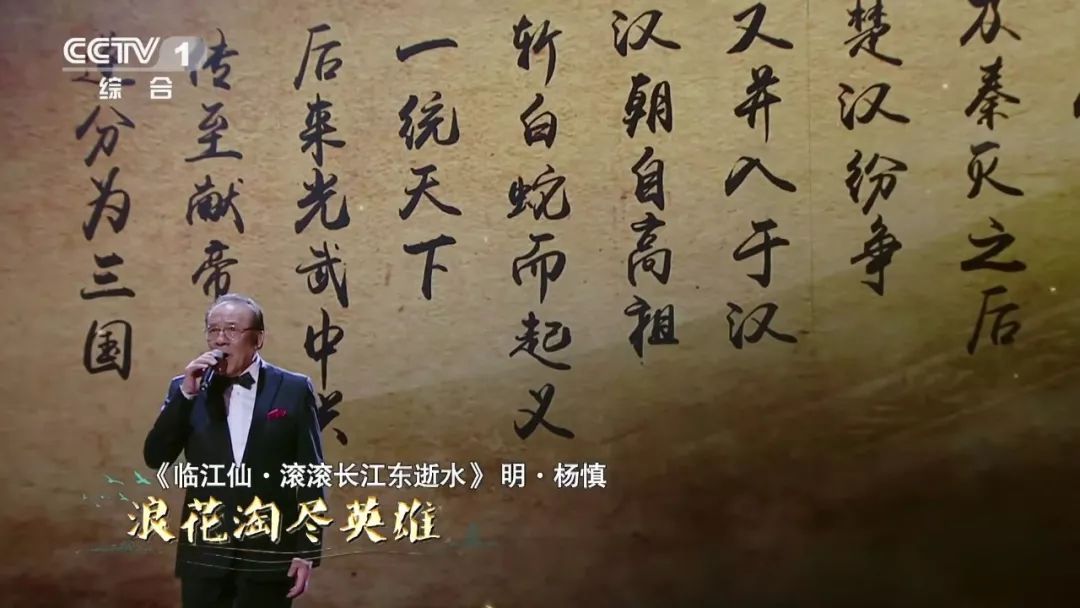 及秦灭之后
楚汉纷争
又并入于汉
汉朝自高祖
斩白蛇而起义
一统天下
后来光武中兴
传至献帝
遂分为三国
CCTV 1
综合
《临江仙·滚滚长江东逝水》 明·杨慎
浪花淘尽英雄